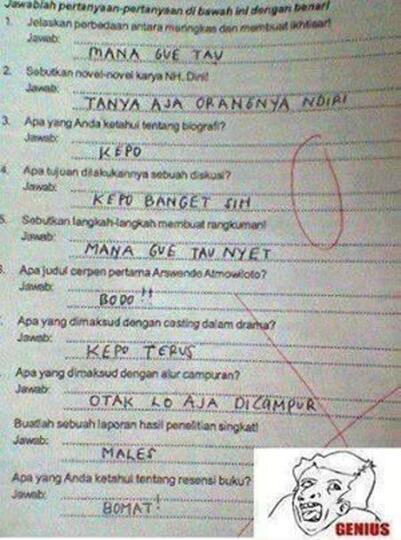 Jawablah pertanyaan-pertanyaan di bawah ini dengan benar!
1. Jelaskan perbedaan antara meringkas dan membuat ikhtisar!
Jawab:
MANA GUE TAU
2. Sebutkan novel-novel karya NH. Dini!
Jawab:
TANYA AJA ORANGNYA NDIRI
3. Apa yang Anda ketahui tentang biografi?
Jawab:
KEPO
4. Apa tujuan dilakukannya sebuah diskusi?
Jawab:
KEPO BANGET SIH
5. Sebutkan langkah-langkah membuat rangkuman!
Jawab:
MANA GUE TAU NYET
Apa judul cerpen pertama Arswendo Atmowiloto?
Jawab:
BODO!!
Apa yang dimaksud dengan casting dalam drama?
Jawab:
KEPO TERUS
Apa yang dimaksud dengan alur campuran?
Jawab:
OTAK LO AJA DICAMPUR
Buatlah sebuah laporan hasil penelitian singkat!
Jawab:
MALES
Apa yang Anda ketahui tentang resensi buku?
Jawab:
BOMAT!
GENIUS